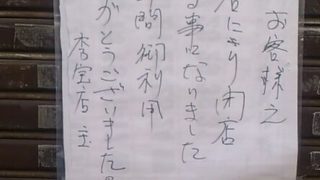 お客様え
店により閉店
る事になりました
間御利用
がとうございました。
店主